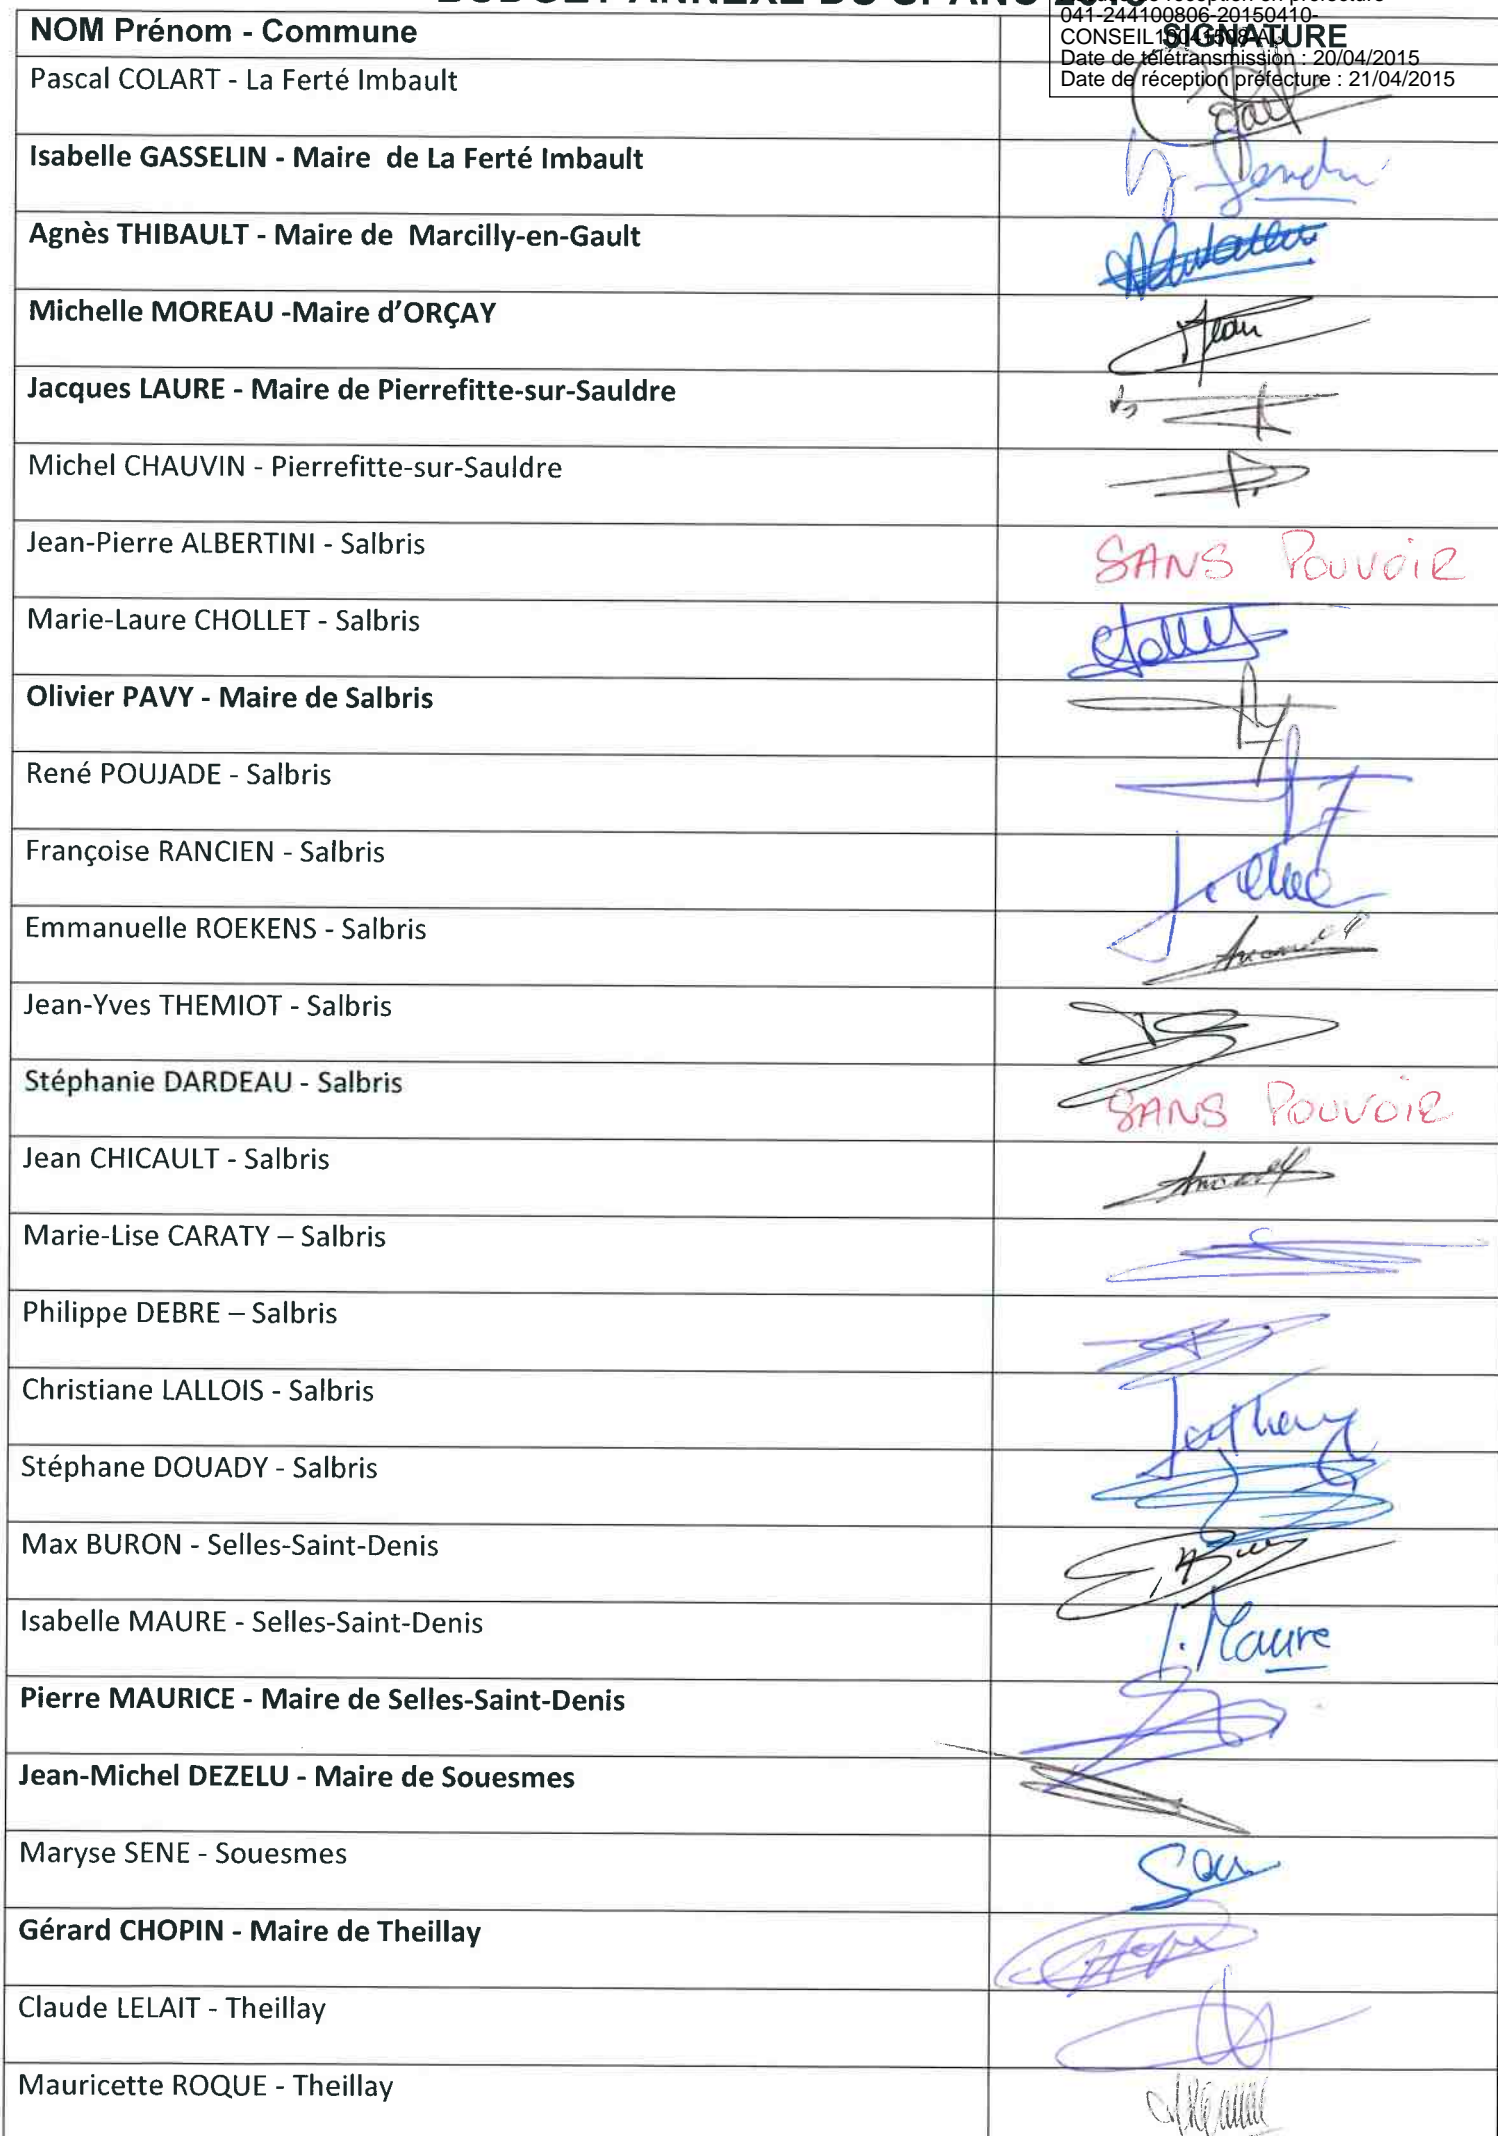 BUDGET ANNEXE DU SPANC 2015
041-244100806-20150410-
CONSEIL10041508-AU
Date de télétransmission : 20/04/2015
Date de réception préfecture : 21/04/2015
NOM Prénom - Commune
SIGNATURE
Pascal COLART - La Ferté Imbault
Isabelle GASSELIN - Maire de La Ferté Imbault
Agnès THIBAULT - Maire de Marcilly-en-Gault
Michelle MOREAU -Maire d'ORÇAY
Jacques LAURE - Maire de Pierrefitte-sur-Sauldre
Michel CHAUVIN - Pierrefitte-sur-Sauldre
Jean-Pierre ALBERTINI - Salbris
SANS POUVOIR
Marie-Laure CHOLLET - Salbris
Olivier PAVY - Maire de Salbris
René POUJADE - Salbris
Françoise RANCIEN - Salbris
Emmanuelle ROEKENS - Salbris
Jean-Yves THEMIOT - Salbris
Stéphanie DARDEAU - Salbris
SANS POUVOIR
Jean CHICAULT - Salbris
Marie-Lise CARATY – Salbris
Philippe DEBRE – Salbris
Christiane LALLOIS - Salbris
Stéphane DOUADY - Salbris
Max BURON - Selles-Saint-Denis
Isabelle MAURE - Selles-Saint-Denis
I. Maure
Pierre MAURICE - Maire de Selles-Saint-Denis
Jean-Michel DEZELU - Maire de Souesmes
Maryse SENE - Souesmes
Gérard CHOPIN - Maire de Theillay
Claude LELAIT - Theillay
Mauricette ROQUE - Theillay